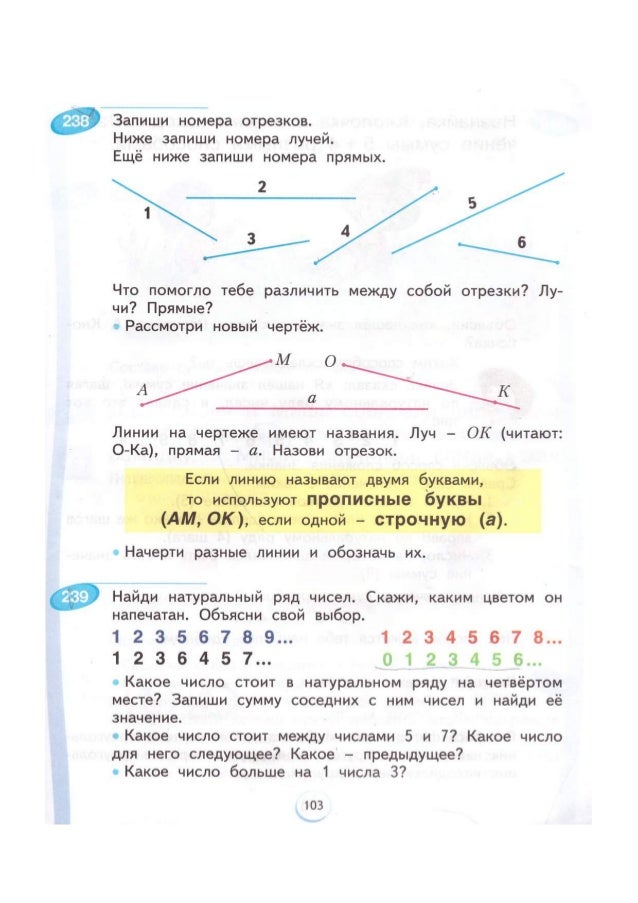 238 Запиши номера отрезков.
Ниже запиши номера лучей.
Ещё ниже запиши номера прямых.
1 2 3 4 5 6
Что помогло тебе различить между собой отрезки? Лу-
чи? Прямые?
• Рассмотри новый чертёж.
А М О К
а
Линии на чертеже имеют названия. Луч – ОК (читают:
О-Ка), прямая – а. Назови отрезок.
Если линию называют двумя буквами,
то используют прописные буквы
(АМ, ОК), если одной – строчную (а).
• Начерти разные линии и обозначь их.
239 Найди натуральный ряд чисел. Скажи, каким цветом он
напечатан. Объясни свой выбор.
1 2 3 5 6 7 8 9... 1 2 3 4 5 6 7 8...
1 2 3 6 4 5 7... 0 1 2 3 4 5 6...
• Какое число стоит в натуральном ряду на четвёртом
месте? Запиши сумму соседних с ним чисел и найди её
значение.
• Какое число стоит между числами 5 и 7? Какое число
для него следующее? Какое – предыдущее?
• Какое число больше на 1 числа 3?
103